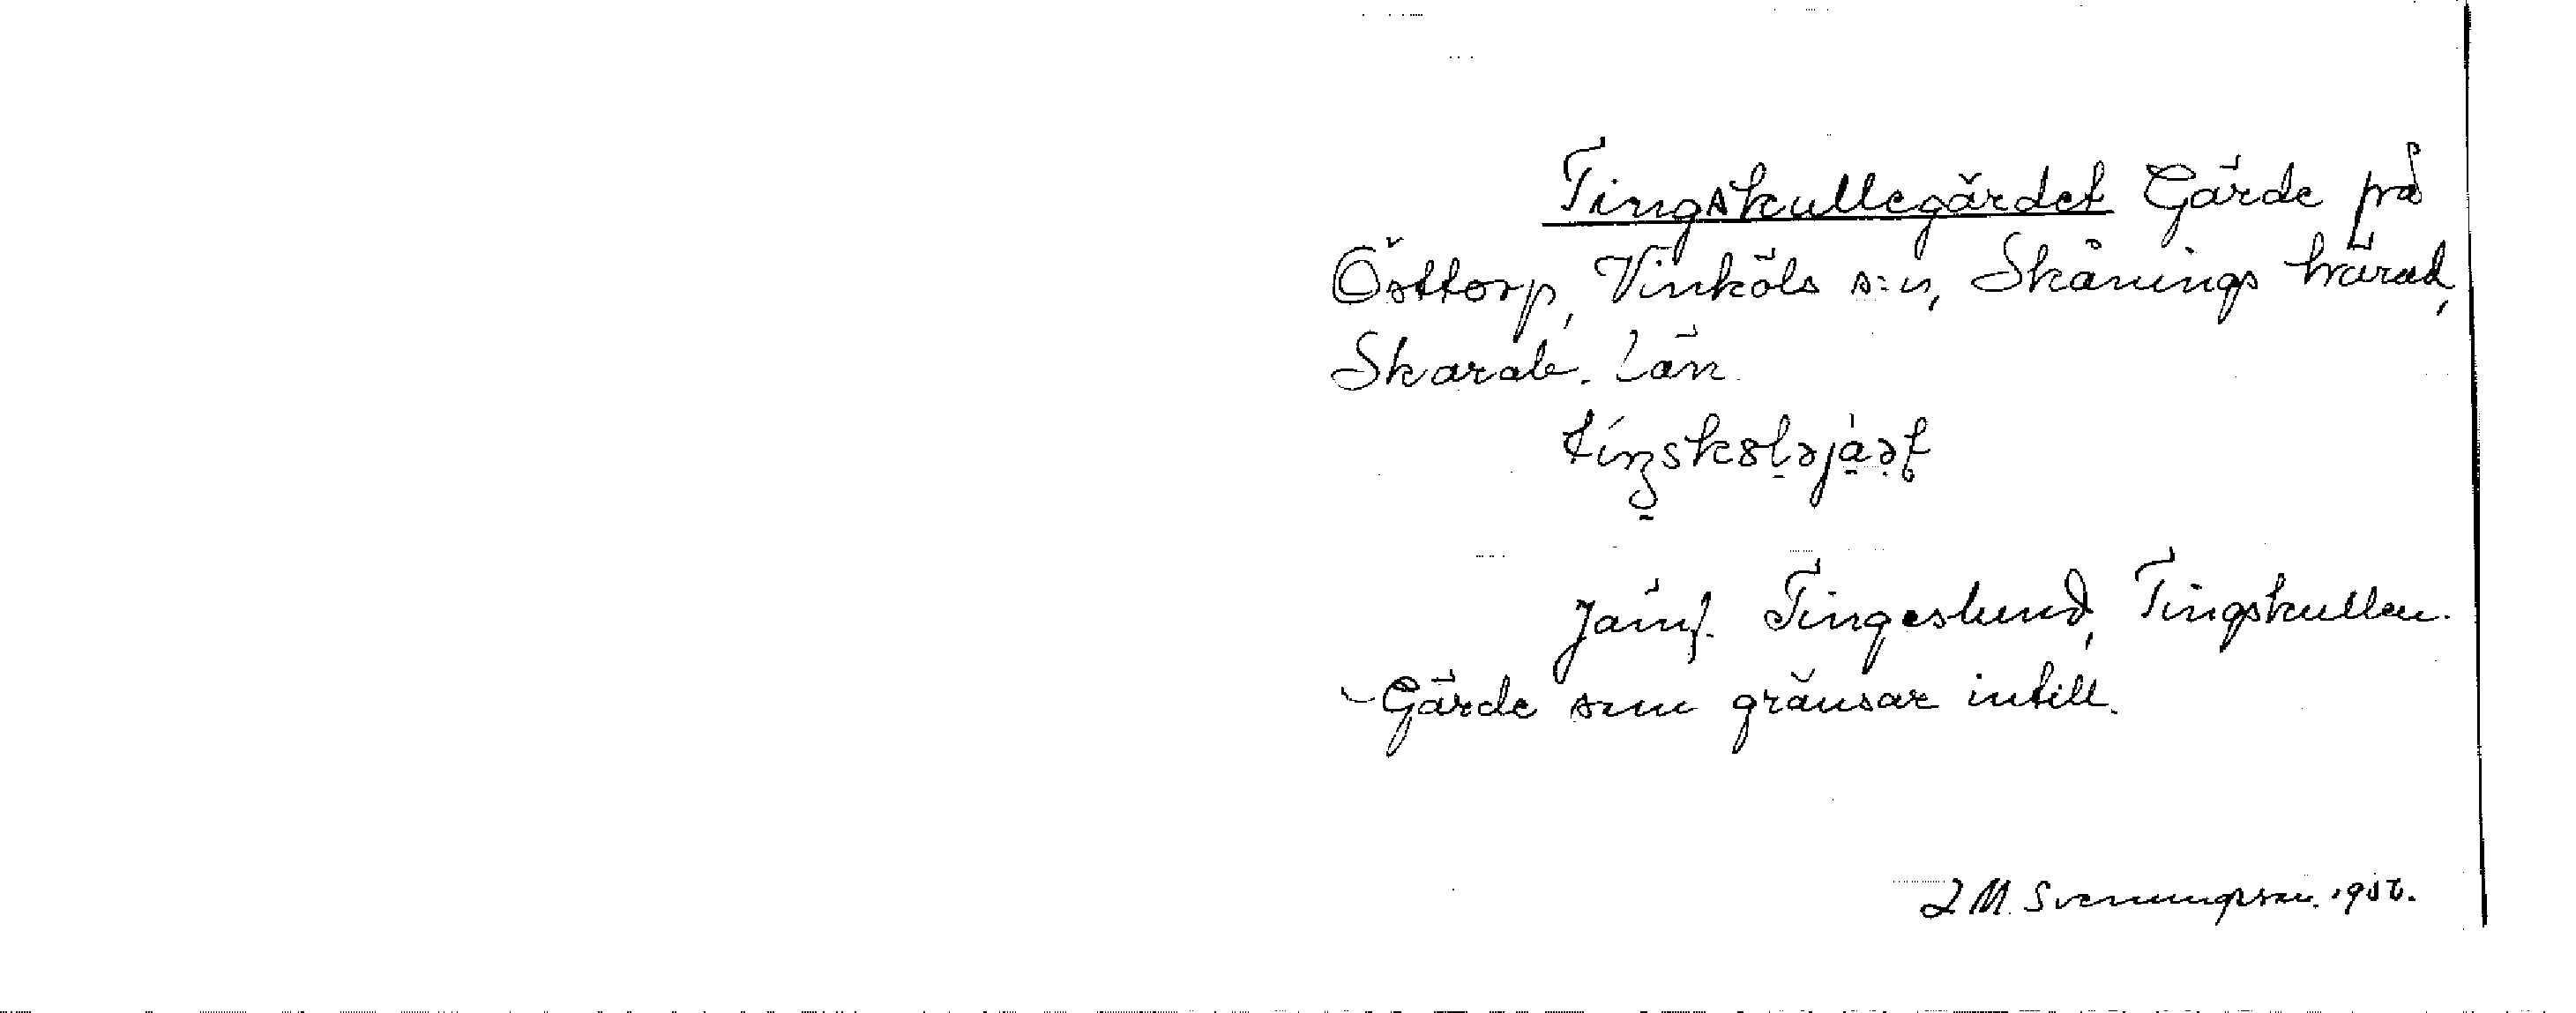 Tingskullegärdet Gärde på
Östtorp, Vinköls s:n, Skånings härad,
Skarab. län.
Jämf. Tingeslund, Tingskullen.
Gärde som gränsar intill.
Svenungsson.